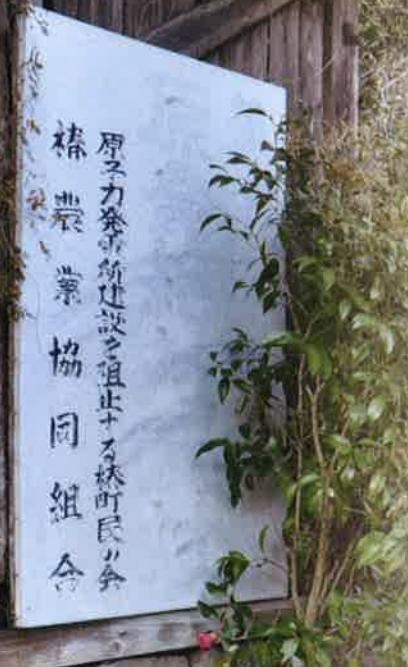 原子力発電所建設を阻止する椿町民の会
椿農業協同組合